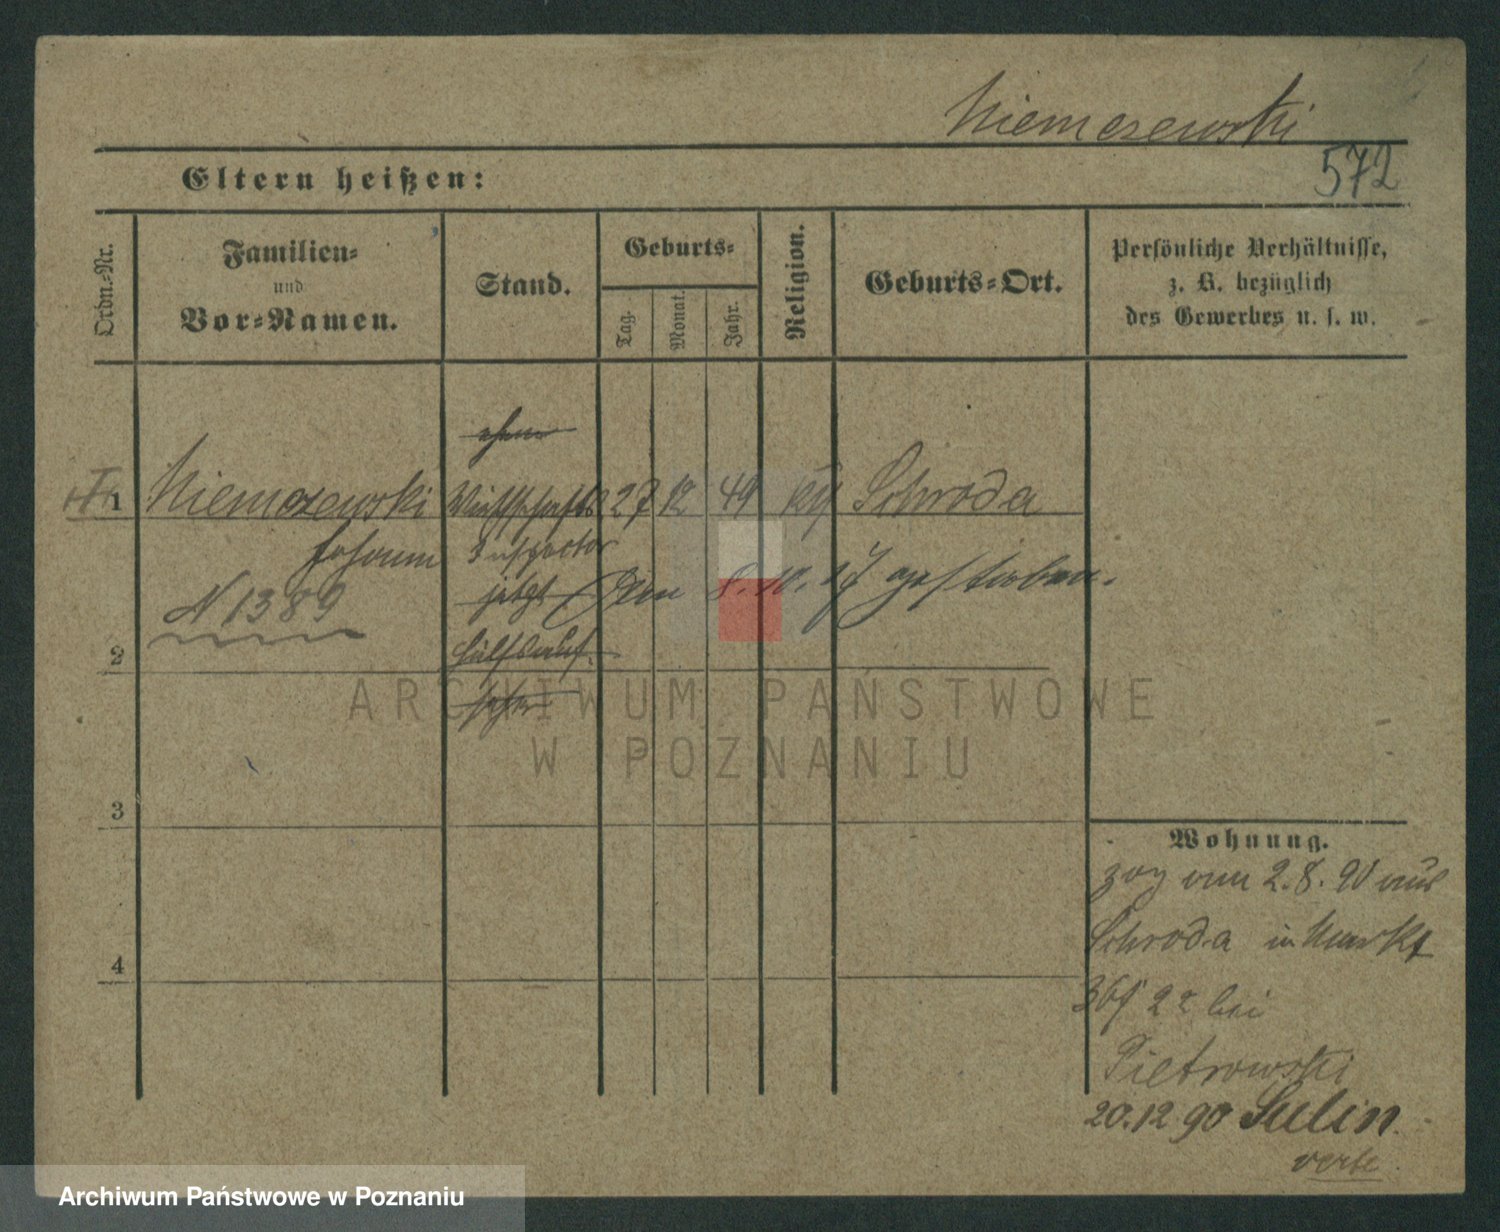 Niemczewski
572
Eltern heißen:
Ordn.-Nr.
Familien-
und
Vor-Namen.
Stand.
Geburts-
Tag.
Monat.
Jahr.
Religion.
Geburts-Ort.
Persönliche Verhältnisse,
z. B. bezüglich
des Gewerbes u. s. w.
ehem
1 Niemczewski Wirthschafts 27 12 49 Schroda
Johann Inspector
jetzt Den 8.10. gestorben.
N 1389
2 Hülfsauf-
seher
ARCHIWUM PAŃSTWOWE
W POZNANIU
3
Wohnung.
zog am 2.8.90 aus
Schroda in Markt
4
22 bei
Pietrowski
20.12 90
verte
Archiwum Państwowe w Poznaniu